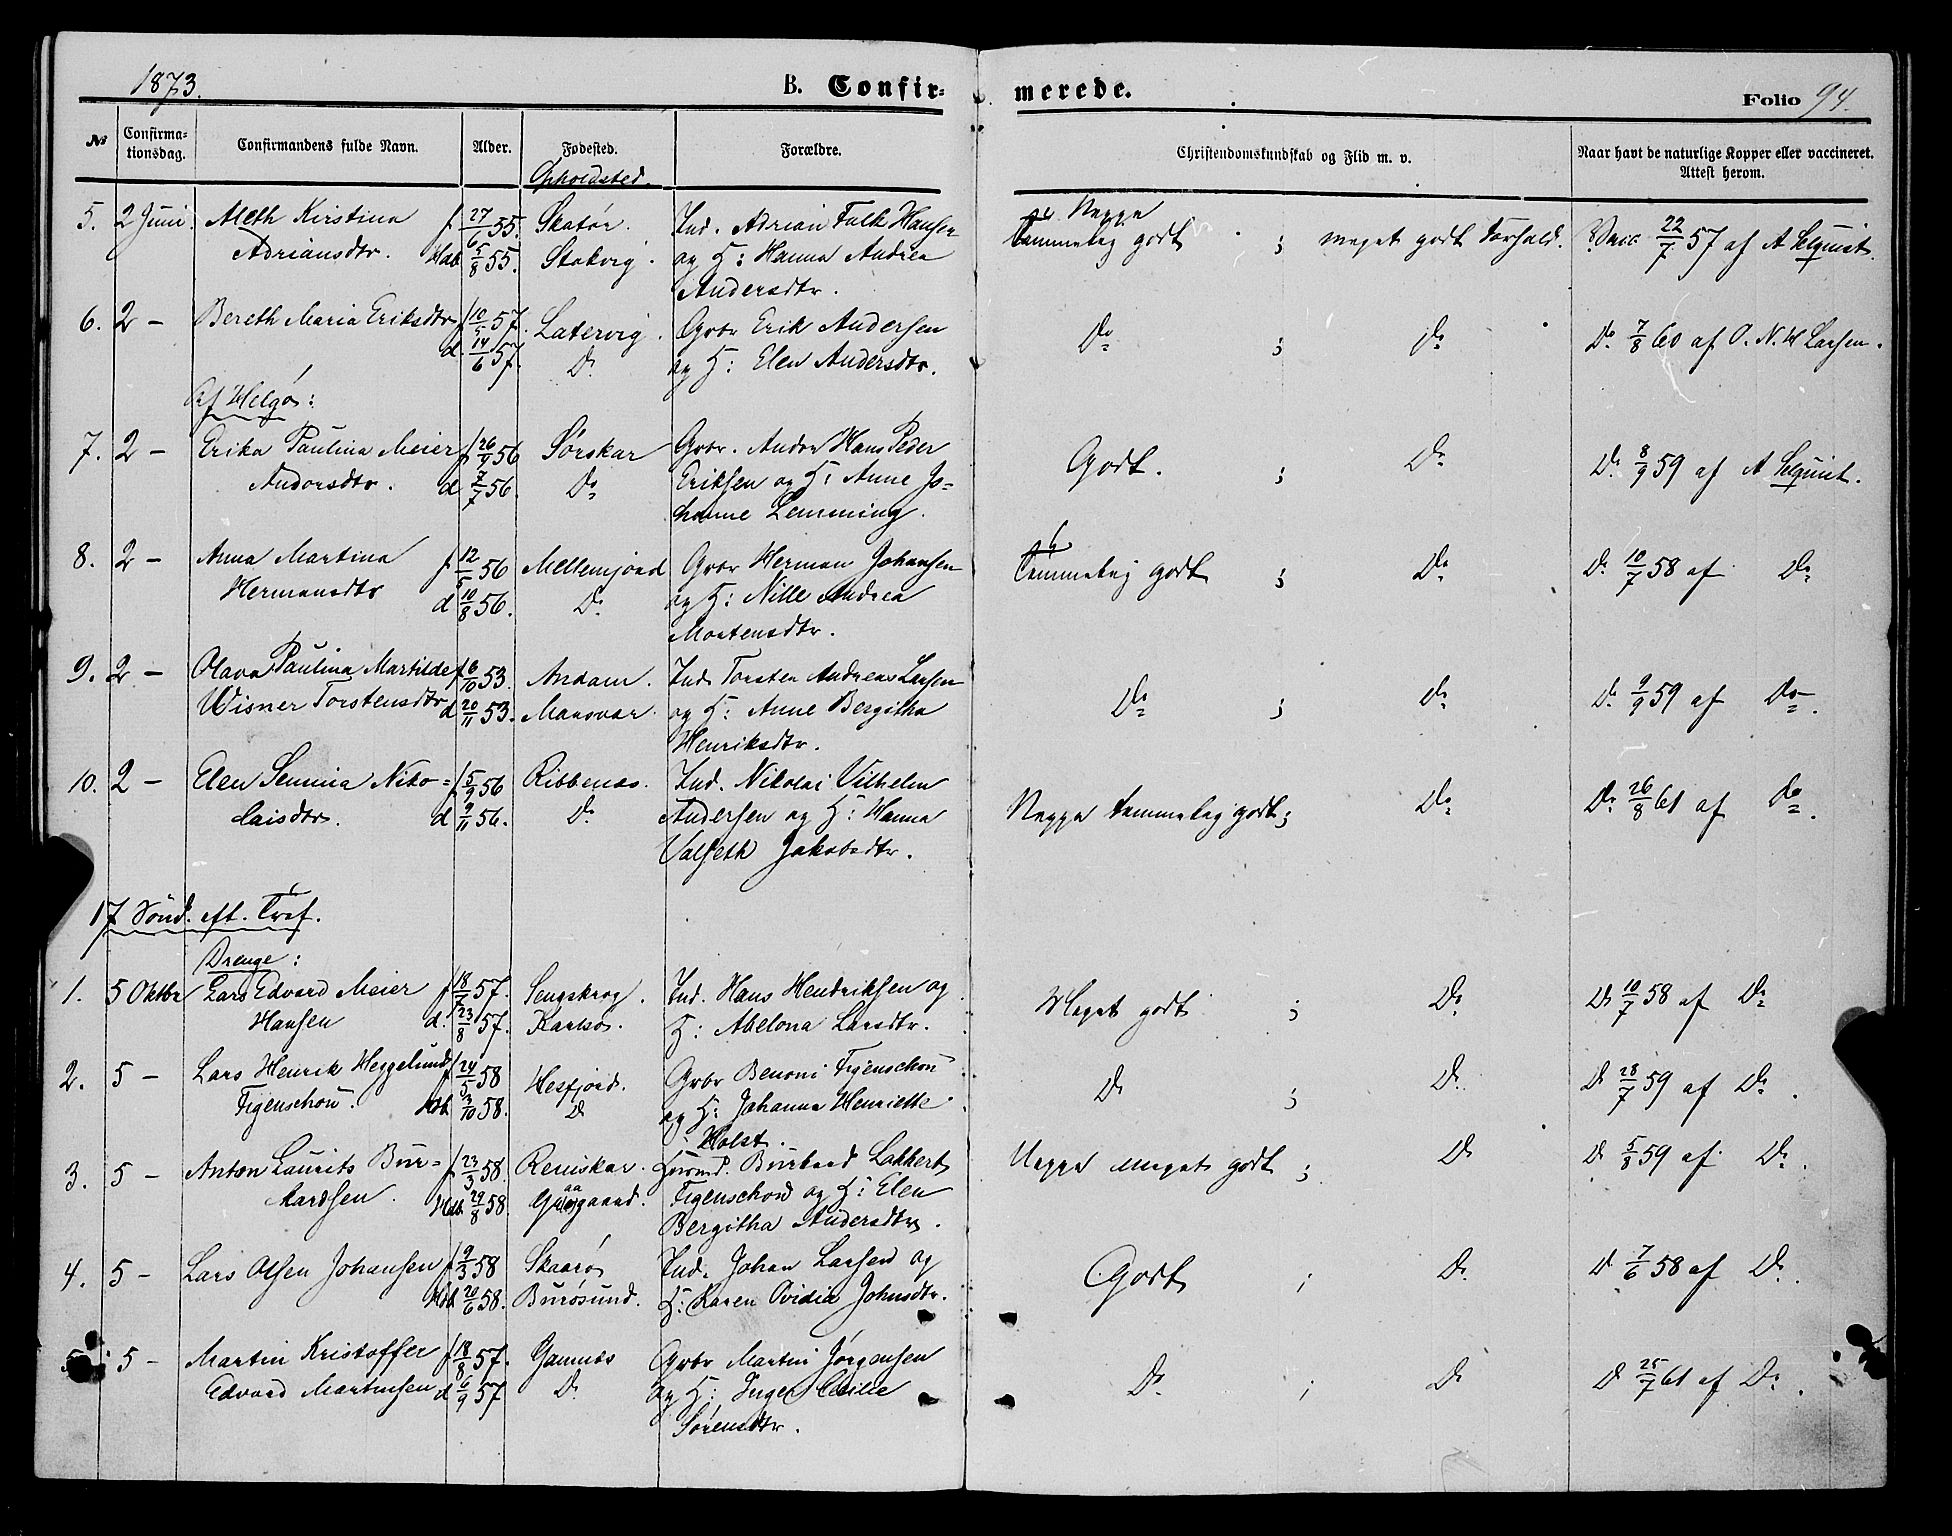 1873.
B. Confirmerede.
Folio 94.
№ Confirmationsdag. Confirmandens fulde Navn. Alder. Fødested. Forældre. Christendomskundskab og Flid m. v. Naar havt de naturlige Kopper eller vaccineret. Attest herom.
Opholdsted.
5. 2 Juni. Meth Kirstina f 27/6 55. Skatør. Ind. Adrian Falk Hansen Neppe
Adriansdtr. Hdb 5/8 55. Stakvig. og H: Hanna Andrea temmelig godt ; meget godt Forhold. Vacc 22/7 57 af A Selquist.
Andersdtr.
6. 2 — Bereth Maria Eriksdtr f 10/5 57. Latervig. Gbr Erik Andersen Do ; Do Do 7/8 60 af O. N. W Larsen.
d. 14/6 57. Do og H: Elen Andersdtr.
Af Helgø:
7. 2 — Erika Paulina Meier f 26/4 56 Sørskar Gbr. Andor Hans Peder Godt. ; Do Do 8/9 59 af A Selquist.
Andorsdtr. d 7/7 56. Do Eriksen og H: Anne Jo=
hanne Lemming.
8. 2 — Anna Martina f 12/5 56 Mellemjord Gbr Herman Johansen temmelig godt ; Do Do 10/7 58 af Do
Hermansdtr d 10/8 56. Do og H: Nille Andrea
Mortensdtr.
9. 2 — Olava Paulina Martilde f 6/10 53. Andam. Ind. Torsten Andreas Larsen Do ; Do Do 9/9 59 af Do.
Wisner Torstensdtr d 20/11 53. Maasvær. og H: Anne Bergitha
Henriksdtr.
10. 2 — Elen Senmia Niko= f 5/9 56 Ribbenæs. Ind. Nikolai Vilhelm Neppe temmelig godt ; Do Do 26/8 61 af Do.
laisdtr. d 9/11 56. Do Andersen og H: Hanna
Valseth Jakobsdtr.
17 Sønd. eft. Tref.
Drenge:
1. 5 Oktbr Lars Edvard Meier f 18/7 57. Sengskrog. Ind. Hans Hendriksen og Meget godt ; Do Do 10/7 58 af Do
Hansen d. 23/8 57. Karlsø. H: Abelona Larsdtr.
2. 5 — Lars Henrik Heggelund f 24/5 58 Hesfjord. Gbr Benoni Figenschou Do ; Do Do 28/7 59 af Do.
Figenschou. Hdb 3/10 58. Do og H: Johanna Henriette
Holst.
3. 5 — Anton Laurits Bur= f 23/3 58. Reniskar. Burhard Lakkert Neppe meget godt ; Do Do 5/8 59 af Do.
hardsen. Hdb 29/8 58. Gaasgaard. Figenschou og H: Elen
Bergitha Andersdtr.
4. 5 — Lars Olsen Johansen f 9/3 58 Skaarø Ind. Johan Larsen og Godt ; Do Do 7/6 58 af Do.
Hdb 20/6 58. Burøsund. H: Karen Ovidia Johnsdtr.
5. 5 — Martin Kristoffer f 18/8 57. Gamnæs Gbr Martin Jörgensen Do ; Do Do 25/7 61 af Do.
Edvard Martinsen d 6/9 57 Do og H: Inger Cecilie
Sörensdtr.